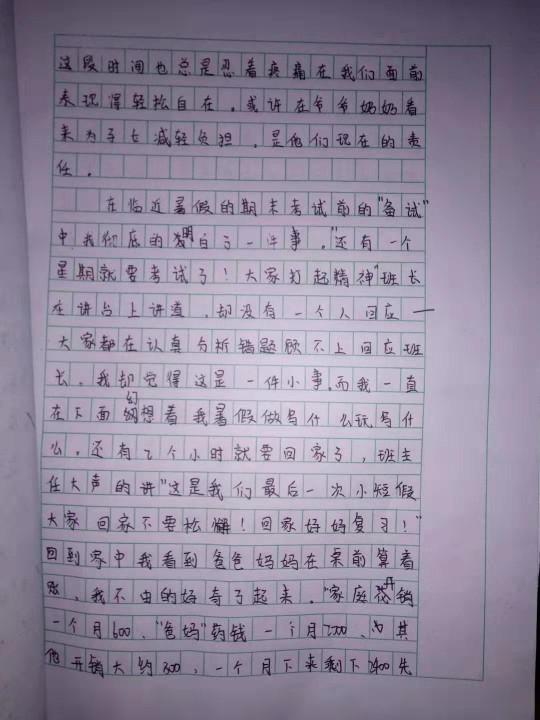 这段时间也总是忍着疼痛在我们面前
表现得轻松自在。或许在爷爷奶奶看
来为子女减轻负担，是他们现在的责
任。
在临近暑假的期末考试前的"备试"
中我彻底的明白了一件事。"还有一个
星期就要考试了！大家打起精神"班长
在讲台上讲道，却没有一个人回应—
大家都在认真分析错题顾不上回应班
长。我却觉得这是一件小事。而我一直
在下面幻想着我暑假做写什么玩写什
么。还有2个小时就要回家了，班主
任大声的讲"这是我们最后一次小短假
大家回家不要松懈！回家好好复习！"
回到家中我看到爸爸妈妈在桌前算着
账，我不由的好奇了起来。"家庭开销
一个月600，"爸妈"药钱一个月2200，其
他开销大约300，一个月下来剩下2400先